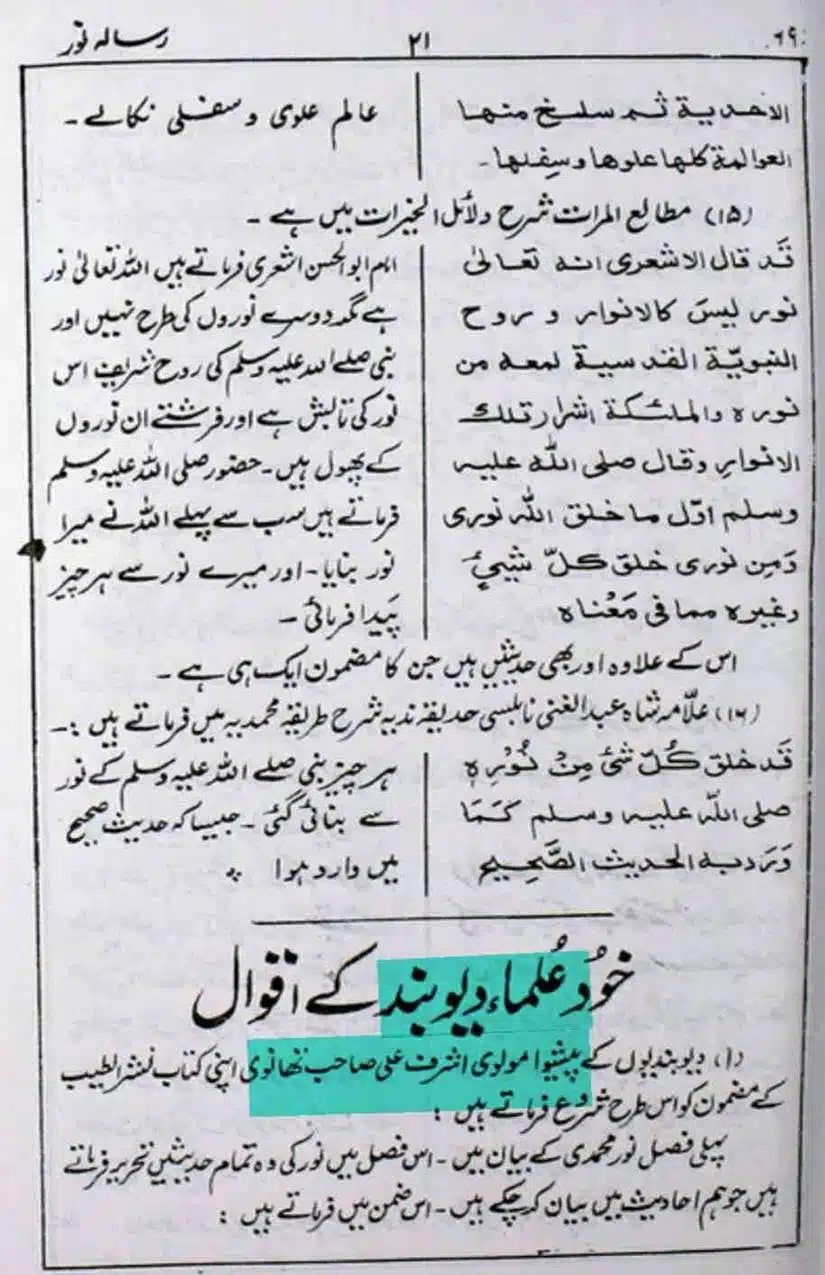 ۶۹
۲۱
رسالہ نور
الاحدیة ثم سلخ منها
العوالمة كلها علوها وسفلها۔
عالم علوی و سفلی نکالے ۔
(۱۵) مطالع المرات شرح دلائل الخیرات میں ہے ۔
قد قال الاشعری انه تعالیٰ
نور لیس کالانوار و روح
النبویّة القدسیة لمعه من
نوره والملئکة اشرار تلك
الانوار وقال صلی اللّٰه علیه
وسلم اوّل ما خلق اللّٰه نوری
وَمِن نوری خلق کلّ شیئٍ
وغیره مما فی مَعْناه
امام ابو الحسن اشعری فرماتے ہیں اللہ تعالیٰ نور
ہے مگر دوسرے نوروں کی طرح نہیں اور
نبی صلے اللہ علیہ وسلم کی روح شریف اس
نور کی تابش ہے اور فرشتے ان نوروں
کے پھول ہیں۔ حضور صلی اللہ علیہ وسلم
فرماتے ہیں سب سے پہلے اللہ نے میرا
نور بنایا۔ اور میرے نور سے ہر چیز
پیدا فرمائی ۔
اس کے علاوہ اور بھی حدیثیں ہیں جن کا مضمون ایک ہی ہے ۔
(۱۶) علاّمہ شاہ عبد الغنی نابلسی حدیقہ ندیہ شرح طریقہ محمدیہ میں فرماتے ہیں :۔
قَد خلق کُلّ شئ مِنْ نُوْرِه
صلی اللّٰه علیه وسلم کَمَا
وَرَدَ به الحدیث الصَّحِیح
ہر چیز نبی صلے اللہ علیہ وسلم کے نور
سے بنائی گئی ۔ جیسا کہ حدیث صحیح
میں وارد ہوا
خُود عُلماء دیوبند کے اقوال
(۱) دیوبندیوں کے پیشوا مولوی اشرف علی صاحب تھانوی اپنی کتاب نشر الطیب
کے مضمون کو اس طرح شروع فرماتے ہیں :
پہلی فصل نور محمدی کے بیان میں ۔ اس فصل میں نور کی وہ تمام حدیثیں تحریر فرماتے
ہیں جو ہم احادیث میں بیان کر چکے ہیں ۔ اس ضمن میں فرماتے ہیں :